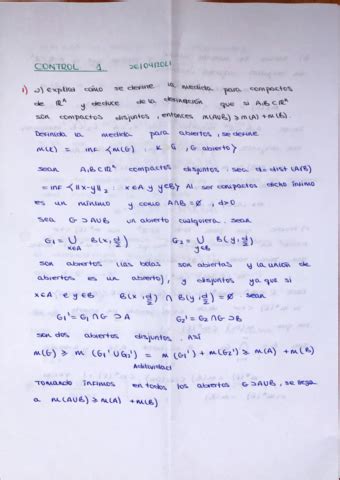 CONTROL 1 26/04/2021
1) a) explica cómo se define la medida para compactos
de ℝⁿ y deduce de la definición que si A,B⊂ℝⁿ
son compactos disjuntos, entonces m(A∪B) ≥ m(A) + m(B).
Definida la medida para abiertos, se define
m(K) = inf { m(G) : K ⊂ G, G abierto }
sean A,B⊂ℝⁿ compactos disjuntos. sea d = dist (A,B)
= inf { ||x-y||₂ : x∈A y y∈B } Al ser compactos dicho ínfimo
es un mínimo y como A∩B = ∅, d>0
sea G ⊃ A∪B un abierto cualquiera. sean
G₁ = ⋃ x∈A B(x, d/2) G₂ = ⋃ y∈B B(y, d/2)
son abiertos (las bolas son abiertas y la unión de
abiertos es un abierto), y disjuntos ya que si
x∈A e y∈B B(x, d/2) ∩ B(y, d/2) = ∅. sean
G₁' = G₁ ∩ G ⊃ A G₂' = G₂ ∩ G ⊃ B
son dos abiertos disjuntos. Así
m(G) ≥ m (G₁' ∪ G₂') = m(G₁') + m(G₂') ≥ m(A) + m(B)
Aditividad
Tomando ínfimos en todos los abiertos G ⊃ A∪B, se llega
a m(A∪B) ≥ m(A) + m(B)